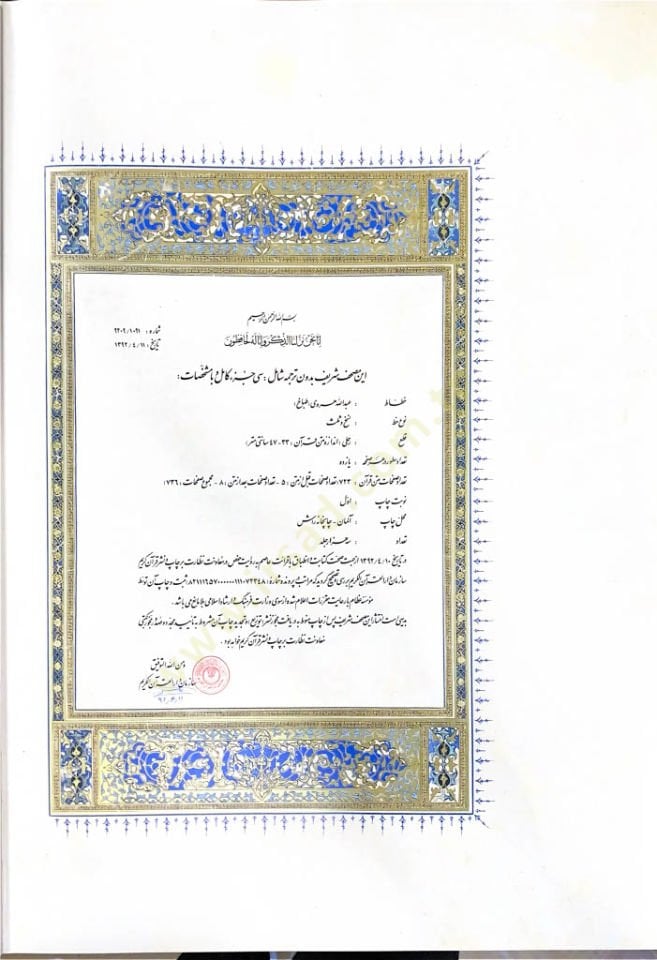 بسم الله الرحمن الرحیم
انا نحن نزلنا الذکر و انا له لحافظون
شماره : ۲۲۰۲/۱۰۹۱
تاریخ : ۱۳۹۲/۴/۱۱
این مصحف شریف بدون ترجمه شامل : سی جزء کامل و با مشخصات :
خطاط : عبدالله هروی (طباخ)
نوع خط : نسخ و ثلث
قطع : رحلی (اندازه متن قرآن : ۳۳-۴۷ سانتی متر)
تعداد سطور در هر صفحه : یازده
تعداد صفحات متن قرآن : ۷۲۳ (تعداد صفحات قبل از متن : ۵ - تعداد صفحات بعد از متن : ۸ - مجموع صفحات : ۷۳۶)
نوبت چاپ : اول
محل چاپ : آلمان - چاپخانه
تعداد : سه هزار جلد
در تاریخ ۱۳۹۲/۴/۱۰ از جهت صحت کتابت و انطباق با قرائت عاصم به روایت حفص در معاونت نظارت بر چاپ و نشر قرآن کریم
سازمان دارالقرآن الکریم بررسی و تصحیح گردید که مراتب با پرونده شماره ثبت و چاپ آن توسط
مؤسسه با رعایت مقررات اعلام شده از سوی وزارت فرهنگ و ارشاد اسلامی بلامانع می باشد .
بدیهی است انتشار این مصحف شریف پس از چاپ منوط به دریافت مجوز نشر و توزیع ، و تجدید چاپ آن مشروط به تأیید مجدد و اخذ مجوز کتبی
معاونت نظارت بر چاپ و نشر قرآن کریم خواهد بود .
و من الله التوفیق
سازمان دارالقرآن الکریم